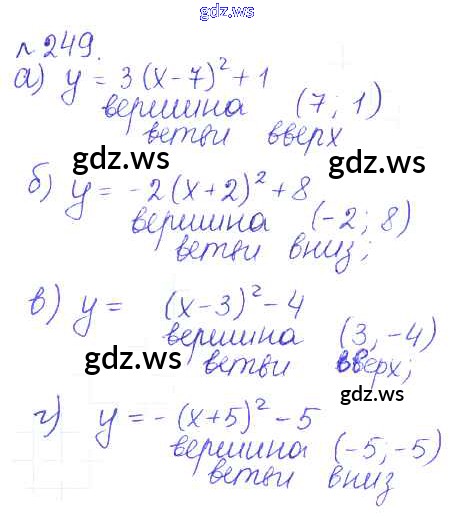 gdz.ws
№249.
а) y = 3(x-7)² + 1
вершина (7; 1)
ветви вверх
gdz.ws gdz.ws
б) y = -2(x+2)² + 8
вершина (-2; 8)
ветви вниз;
в) y = (x-3)² - 4
вершина (3, -4)
gdz.ws ветви вверх;
gdz.ws
г) y = -(x+5)² - 5
вершина (-5; -5)
ветви вниз
gdz.ws